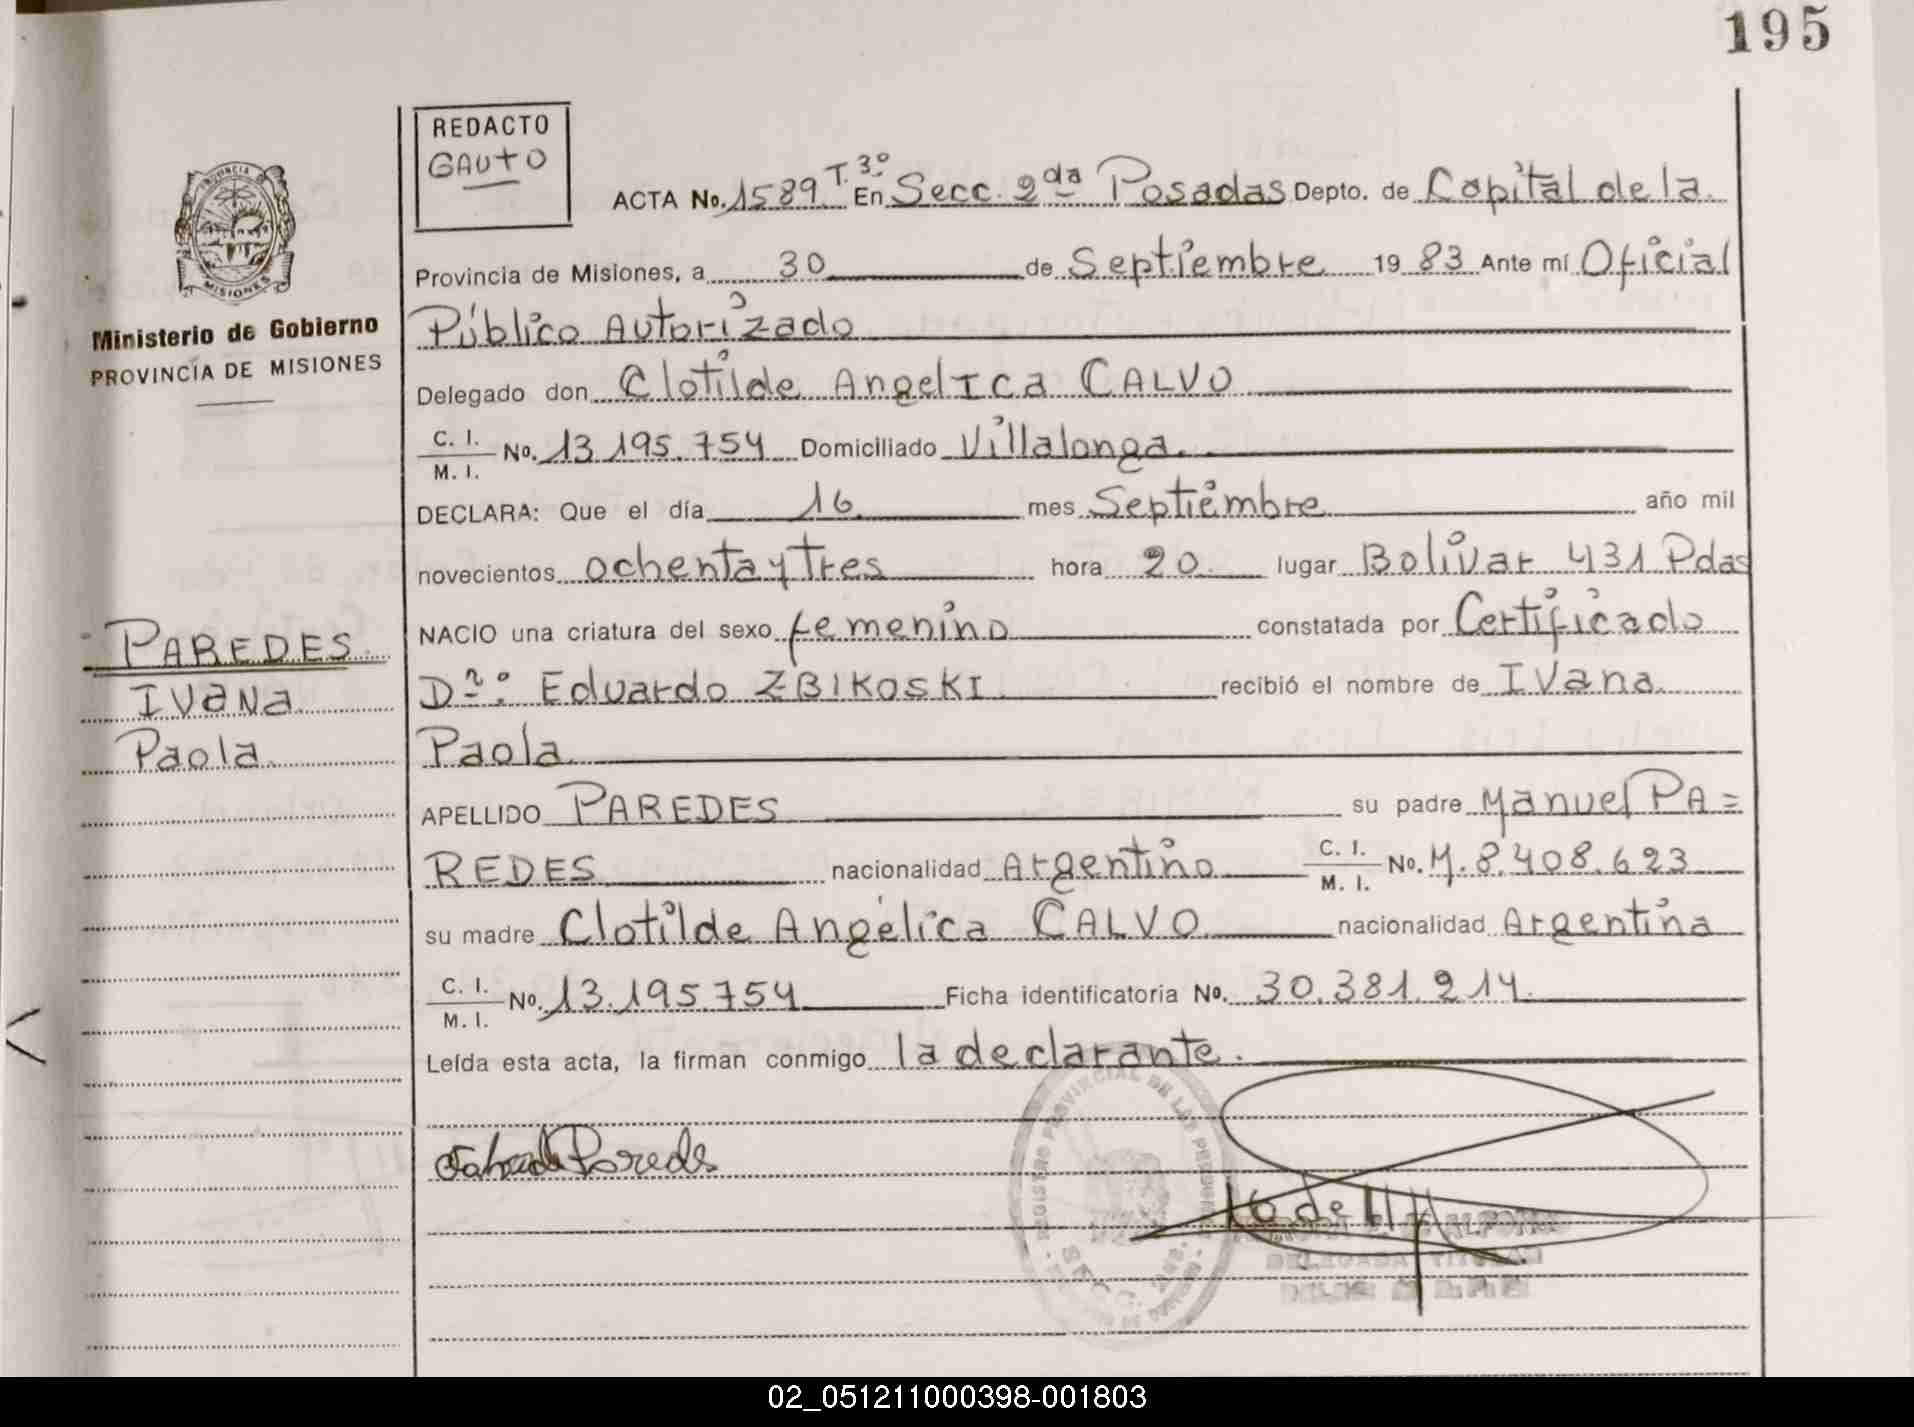 195
REDACTO
GAUTO
ACTA No. 1589 T. 3º En Secc. 2da Posadas Depto. de Capital de la
Provincia de Misiones, a 30 de Septiembre 1983 Ante mí Oficial
Público Autorizado
Delegado don Clotilde Angelica CALVO
C. I.
M. I. No. 13.195.754 Domiciliado Villalonga.
DECLARA: Que el día 16 mes Septiembre año mil
novecientos ochenta y Tres hora 20. lugar Bolívar 431 Pdas
NACIO una criatura del sexo femenino constatada por Certificado
Dr: Eduardo ZBIKOSKI recibió el nombre de Ivana
Paola
APELLIDO PAREDES su padre Manuel PA=
REDES nacionalidad Argentino C. I. M. I. No. M. 8.408.623
su madre Clotilde Angélica CALVO nacionalidad Argentina
C. I.
M. I. No. 13.195.754 Ficha identificatoria No. 30.381.214
Leída esta acta, la firman conmigo la declarante.
PROVINCIA DE
MISIONES
Ministerio de Gobierno
PROVINCIA DE MISIONES
PAREDES
IVANA
Paola
Paredes
REGISTRO PROVINCIAL DE LAS PERSONAS
SECC. 2da.
02_051211000398-001803